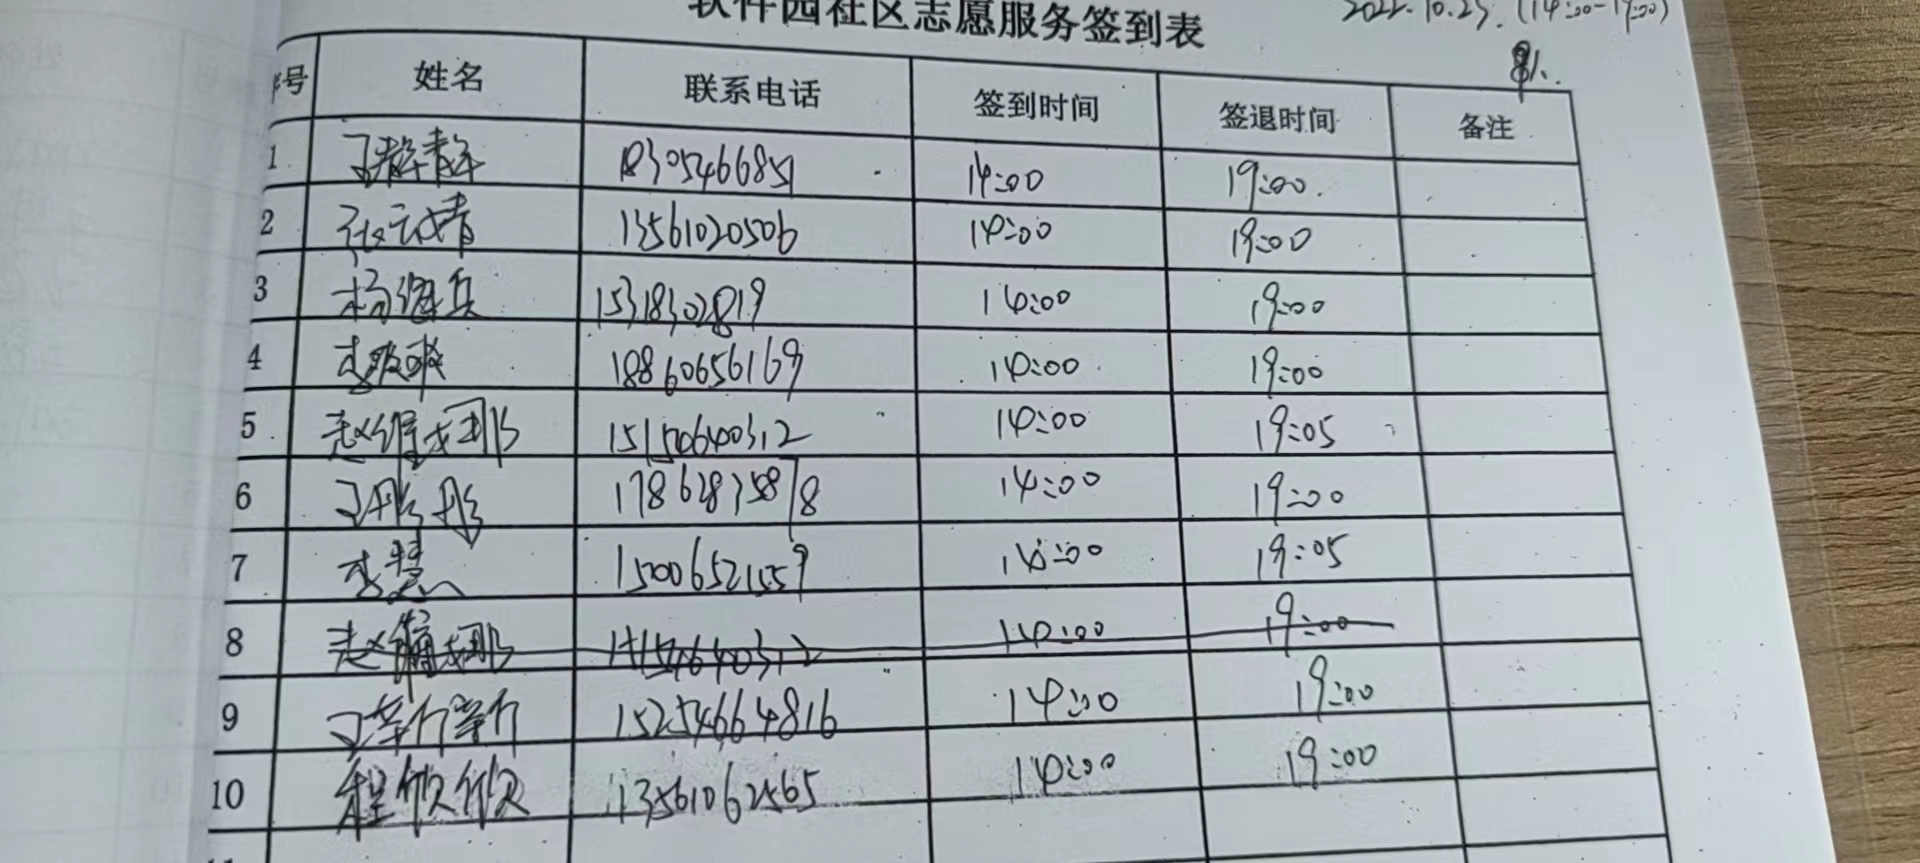 软件园社区志愿服务签到表
2022.10.23.(14:00-19:00)
序号 姓名 联系电话 签到时间 签退时间 备注
1 18305466851 14:00 19:00
2 13561020506 14:00 19:00
3 杨继兵 15318302819 14:00 19:00
4 18860656169 14:00 19:00
5 14:00 19:05
6 17862835878 14:00 19:00
7 李慧 15006521559 14:00 19:05
8 14:00 19:00
9 15254664816 14:00 19:00
10 程欣欣 13561062565 14:00 19:00